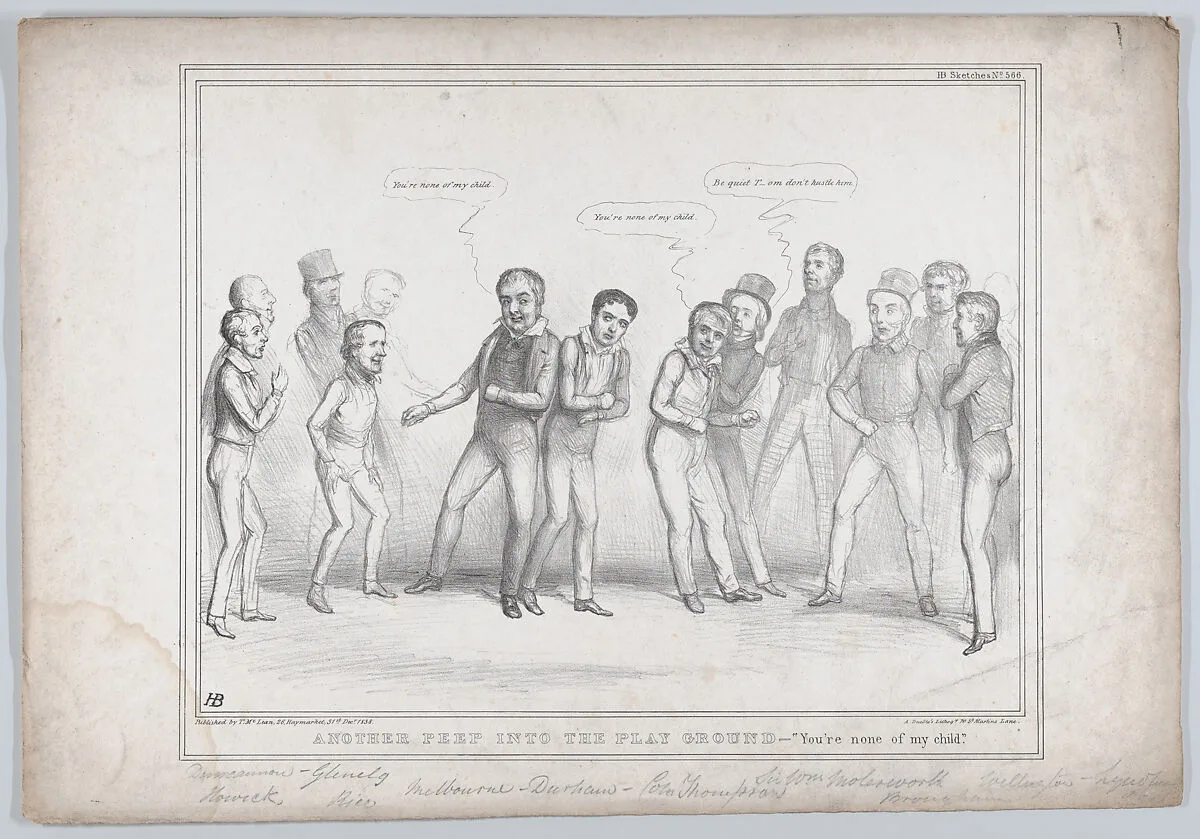 HB Sketches No. 566.
You're none of my child.
Be quiet T_om don't hustle him.
You're none of my child.
HB
Published by T. McLean, 26, Haymarket, 31st Decr. 1838.
A. Ducôte's Lithogy. 70 St. Martins Lane.
ANOTHER PEEP INTO THE PLAY GROUND—"You're none of my child".
Duncannon - Glenelg
Howick Rice Melbourne - Durham - Coln Thompson Sir Wm Molesworth Brougham Wellington -